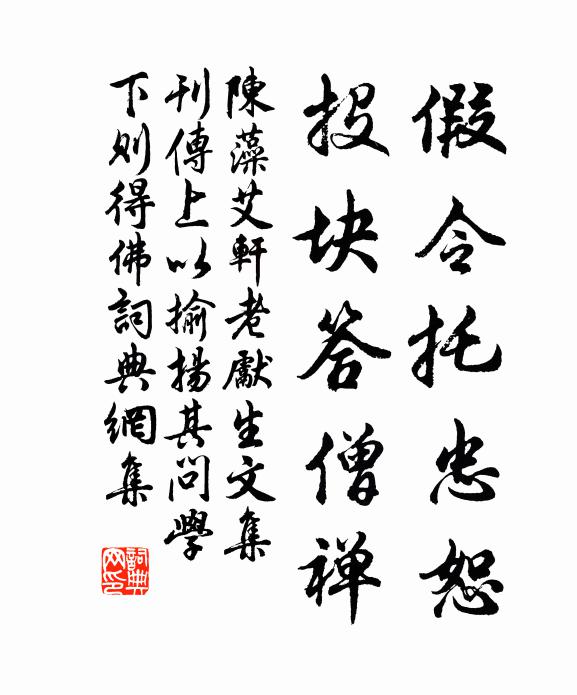 假令托忠恕
投块答僧禅
陳藻艾軒老獻生文集
刊傳上以揄揚其問學
下則得佛詞典網集
詞典网印